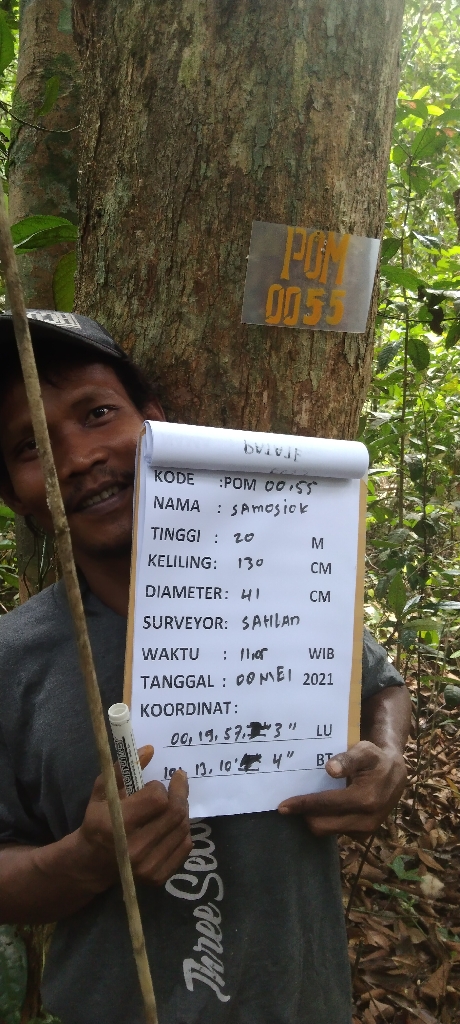 POM
0055
KODE :POM 00,55
NAMA : SAMOSIOK
TINGGI : 20 M
KELILING: 130 CM
DIAMETER: 41 CM
SURVEYOR: SAHLAN
WAKTU : WIB
TANGGAL : 00 MEI 2021
KOORDINAT:
00, 19, 57, 3" LU
13, 10' 4" BT
Three